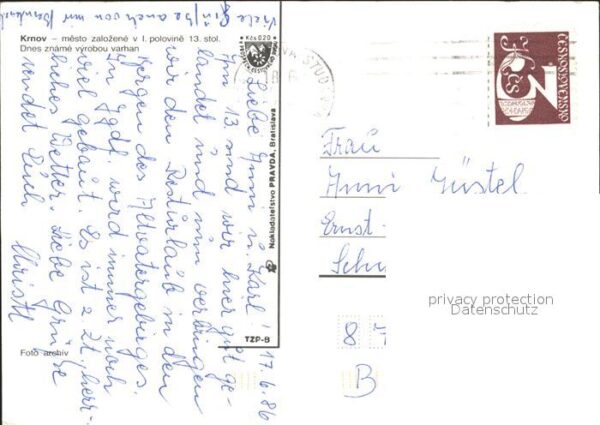 Krnov – město založené v I. polovině 13. stol.
Dnes známé výrobou varhan
Foto archív
Kčs 0,20
Nakladateľstvo PRAVDA, Bratislava
TZP-8
17.6.86
Liebe Anni u. Karl!
Am 13. sind wir hier gut ge-
landet und nun verbringen
wir den Resturlaub in den
Bergen des Altvatergebirges.
In Jgdf. wird immer noch
viel gebaut. Es ist z. Zt. herr-
liches Wetter. Liebe Grüße
sendet Euch
Christl
Viele
Grüße auch von mir
Frau
Anni Jüstel
Ernst-
Schu
8 7
B
ČESKOSLOVENSKO
privacy protection
Datenschutz